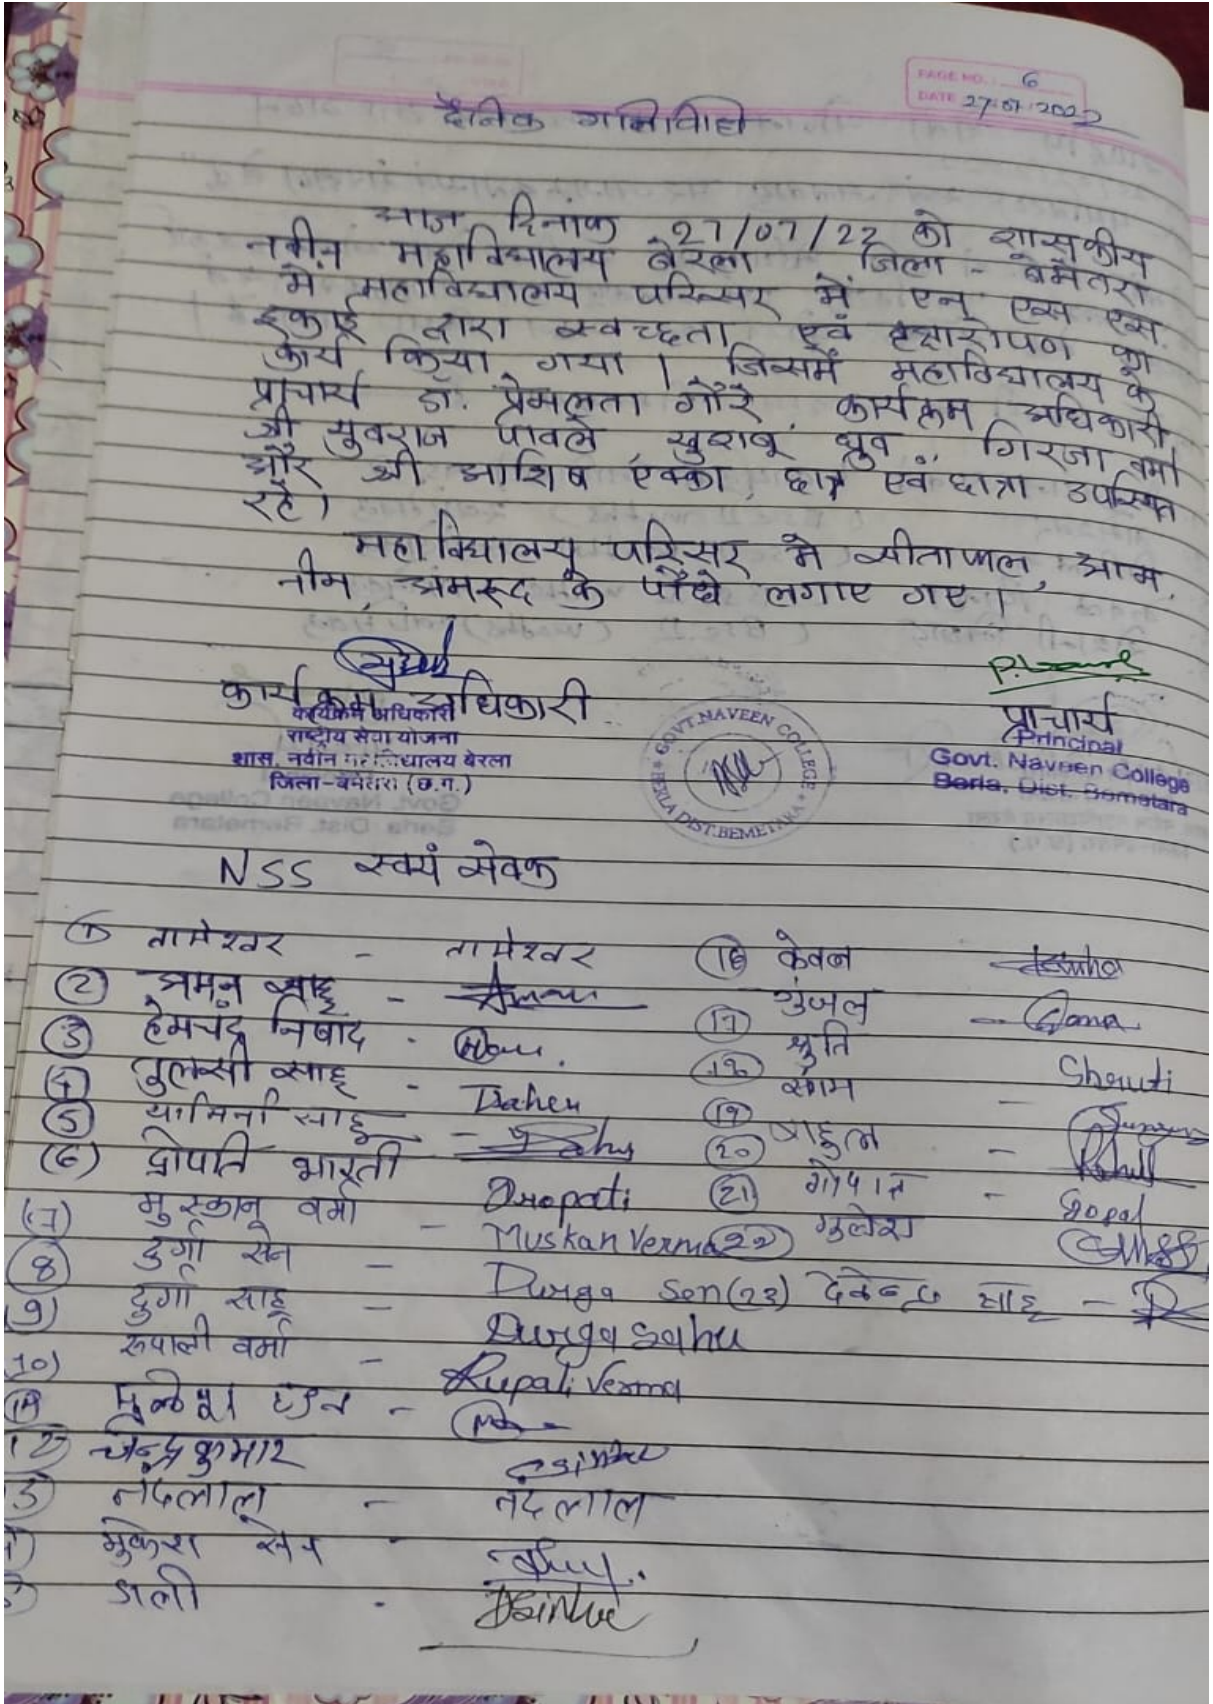 PAGE NO. 6
DATE 27.07.2022
दैनिक गतिविधि
आज दिनांक 27/07/22 को शासकीय
नवीन महाविद्यालय बेरला जिला - बेमेतरा
में महाविद्यालय परिसर में एन एस एस.
इकाई द्वारा स्वच्छता एवं वृक्षारोपण का
कार्य किया गया । जिसमें महाविद्यालय के
प्राचार्य डॉ. प्रेमलता गौरे कार्यक्रम अधिकारी
श्री युवराज पावले खुशबू ध्रुव, गिरजा वर्मा
और श्री आशिष एक्का, छात्र एवं छात्रा उपस्थित
रहे।
महाविद्यालय परिसर मे सीताफल, आम,
नीम, अमरूद के पौधे लगाए गए ।
कार्यक्रम अधिकारी
कार्यक्रम अधिकारी
राष्ट्रीय सेवा योजना
शास. नवीन महाविद्यालय बेरला
जिला-बेमेतरा (छ.ग.)
GOVT. NAVEEN COLLEGE
BERLA DIST. BEMETARA
प्राचार्य
Principal
Govt. Naveen College
Berla, Dist. Bemetara
NSS स्वयं सेवक
(1) तामेश्वर - तामेश्वर
(2) अमन साहू -
(3) हेमचंद्र निषाद -
(4) तुलसी साहू -
(5) यामिनी साहू -
(6) द्रोपति भारती Dropati
(7) मुस्कान वर्मा - Muskan Verma
(8) दुर्गा सेन - Durga Sen
(9) दुर्गा साहू - Durga Sahu
(10) रूपाली वर्मा - Rupali Verma
(11) -
(12) चन्द्रकुमार
नंदलाल - नंदलाल
मुकेश सेन -
डाली -
(16) केवल
(17) गुंजल -
(18) श्रुति - Shruti
(19)
(20) राहुल - Rahul
(21) गोपाल - Gopal
(22) गुलेश
(23) देवेन्द्र साहू -